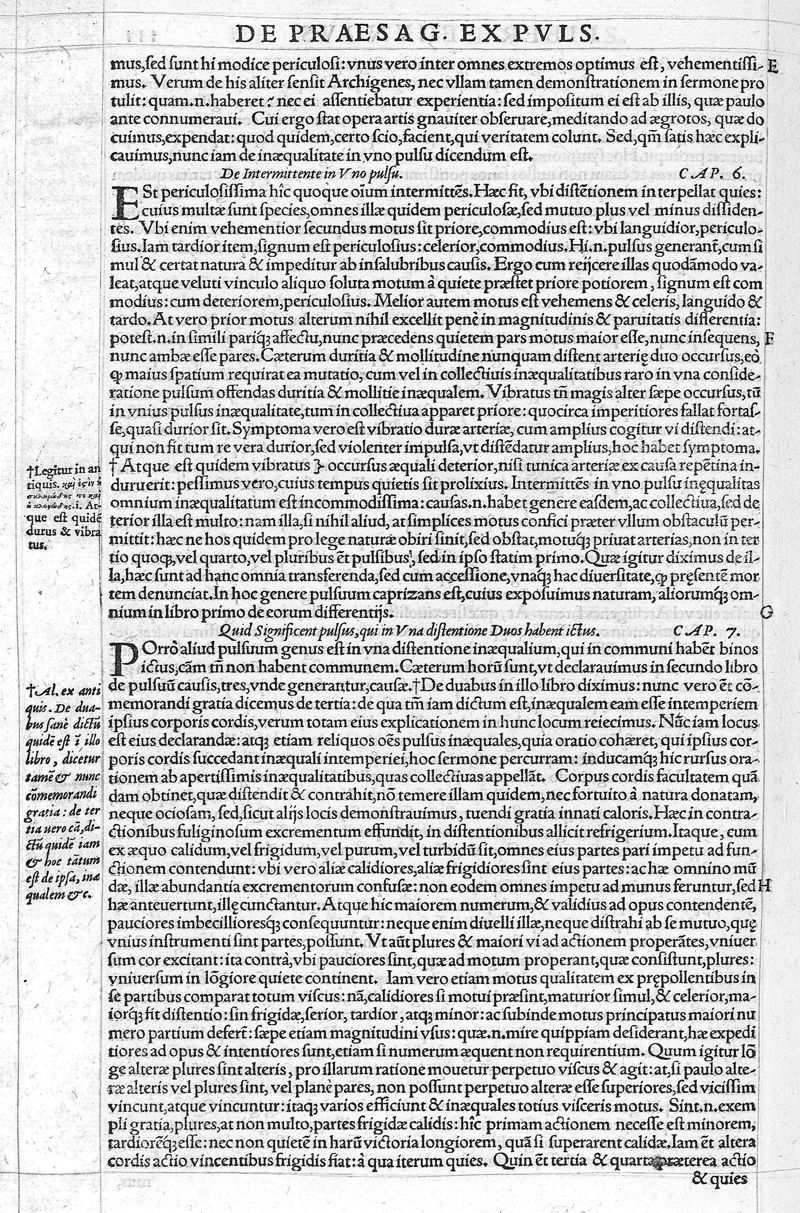 DE PRAESAG. EX PVLS.
mus,sed sunt hi modice periculosi: vnus vero inter omnes extremos optimus est, vehementissi- E
mus. Verum de his aliter sensit Archigenes, nec vllam tamen demonstrationem in sermone pro
tulit: quam.n.haberet? nec ei assentiebatur experientia: sed impositum ei est ab illis, quæ paulo
ante connumeraui. Cui ergo stat opera artis gnauiter obseruare, meditando ad ægrotos, quæ do
cuimus, expendat: quod quidem, certo scio, facient, qui veritatem colunt. Sed, qm̃ satis hæc expli-
cauimus, nunc iam de inæqualitate in vno pulsu dicendum est.
De Intermittente in Vno pulsu. CAP. 6.
ESt periculosissima hîc quoque oĩum intermittẽs. Hæc fit, vbi distẽtionem interpellat quies:
cuius multæ sunt species, omnes illæ quidem periculosæ, sed mutuo plus vel minus dissiden-
tes. Vbi enim vehementior secundus motus sit priore, commodius est: vbi languidior, periculo-
sius. Iam tardior item, signum est periculosius: celerior, commodius. Hi.n.pulsus generant̃, cum si
mul & certat natura & impeditur ab insalubribus causis. Ergo cum reijcere illas quodãmodo va-
leat, atque veluti vinculo aliquo soluta motum à quiete præstet priore potiorem, signum est com
modius: cum deteriorem, periculosius. Melior autem motus est vehemens & celeris, languido &
tardo. At vero prior motus alterum nihil excellit penè in magnitudinis & paruitatis differentia:
potest.n.in simili pariq; affectu, nunc præcedens quietem pars motus maior esse, nunc insequens, F
nunc ambæ esse pares. Cæterum duritia & mollitudine nunquam distent arterię duo occursus, eò
ꝙ maius spatium requirat ea mutatio, cum vel in collectiuis inæqualitatibus raro in vna conside-
ratione pulsum offendas duritia & mollitie inæqualem. Vibratus tñ magis alter sæpe occursus, tũ
in vnius pulsus inæqualitate, tum in collectiua apparet priore: quocirca imperitiores fallat fortas-
se, quasi durior sit. Symptoma vero est vibratio duræ arteriæ, cum amplius cogitur vi distendi: at-
qui non fit tum re vera durior, sed violenter impulsa, vt distẽdatur amplius, hoc habet symptoma.
† Atque est quidem vibratus } occursus æquali deterior, nisi tunica arteriæ ex causa repẽtina in-
duruerit: pessimus vero, cuius tempus quietis sit prolixius. Intermittẽs in vno pulsu inęqualitas
omnium inæqualitatum est incommodissima: causas.n.habet genere easdem, ac collectiua, sed de
terior illa est multo: nam illa, si nihil aliud, at simplices motus confici præter vllum obstaculũ per-
mittit: hæc ne hos quidem pro lege naturæ obiri sinit, sed obstat, motuq; priuat arterias, non in ter
tio quoq;, vel quarto, vel pluribus ẽt pulsibus, sed in ipso statim primo. Quæ igitur diximus de il-
la, hæc sunt ad hanc omnia transferenda, sed cum accessione, vnaq; hac diuersitate, ꝙ pręsentẽ mor
tem denunciat. In hoc genere pulsuum caprizans est, cuius exposuimus naturam, aliorumq; om-
nium in libro primo de eorum differentijs. G
†Legitur in an
tiquis.
i. At-
que est quidẽ
durus & vibra
tus.
Quid Significent pulsus, qui in Vna distentione Duos habent ictus. CAP. 7.
POrrò aliud pulsuum genus est in vna distentione inæqualium, qui in communi habẽt binos
ictus, cãm tñ non habent communem. Cæterum horũ sunt, vt declarauimus in secundo libro
de pulsuũ causis, tres, vnde generantur, causæ. †De duabus in illo libro diximus: nunc vero ẽt cõ-
memorandi gratia dicemus de tertia: de qua tñ iam dictum est, inæqualem eam esse intemperiem
ipsius corporis cordis, verum totam eius explicationem in hunc locum reiecimus. Nũc iam locus
est eius declarandæ: atq; etiam reliquos oẽs pulsus inæquales, quia oratio cohæret, qui ipsius cor-
poris cordis succedant inæquali intemperiei, hoc sermone percurram: inducamq; hic rursus ora-
tionem ab apertissimis inæqualitatibus, quas collectiuas appellãt. Corpus cordis facultatem quã
dam obtinet, quæ distendit & contrahit, nõ temere illam quidem, nec fortuito à natura donatam,
neque ociosam, sed, sicut alijs locis demonstrauimus, tuendi gratia innati caloris. Hæc in contra-
ctionibus fuliginosum excrementum effundit, in distentionibus allicit refrigerium. Itaque, cum
ex æquo calidum, vel frigidum, vel purum, vel turbidũ sit, omnes eius partes pari impetu ad fun-
ctionem contendunt: vbi vero aliæ calidiores, aliæ frigidiores sint eius partes: ac hæ omnino mũ
dæ, illæ abundantia excrementorum confusæ: non eodem omnes impetu ad munus feruntur, sed H
hæ anteuertunt, illę cunctantur. Atque hic maiorem numerum, & validius ad opus contendentẽ,
pauciores imbecilliores q; consequuntur: neque enim diuelli illæ, neque distrahi ab se mutuo, quę
vnius instrumenti sint partes, possunt. Vt aũt plures & maiori vi ad actionem properãtes, vniuer
sum cor excitant: ita contrà, vbi pauciores sint, quæ ad motum properant, quæ consistunt, plures:
vniuersum in lõgiore quiete continent. Iam vero etiam motus qualitatem ex prępollentibus in
se partibus comparat totum viscus: nã, calidiores si motui præsint, maturior simul, & celerior, ma-
iorq; fit distentio: sin frigidæ, serior, tardior, atq; minor: ac subinde motus principatus maiori nu
mero partium defert̃: sæpe etiam magnitudini vsus: quæ.n.mire quippiam desiderant, hæ expedi
tiores ad opus & intentiores sunt, etiam si numerum æquent non requirentium. Quum igitur lõ
ge alteræ plures sint alteris, pro illarum ratione mouetur perpetuo viscus & agit: at, si paulo alte-
ræ alteris vel plures sint, vel planè pares, non possunt perpetuo alteræ esse superiores, sed vicissim
vincunt, atque vincuntur: itaq; varios efficiunt & inæquales totius visceris motus. Sint.n.exem
pli gratia, plures, at non multo, partes frigidæ calidis: hîc primam actionem necesse est minorem,
tardiorẽq; esse: nec non quietẽ in harũ victoria longiorem, quã si superarent calidæ. Iam ẽt altera
cordis actio vincentibus frigidis fiat: à qua iterum quies. Quin ẽt tertia & quarta præterea actio
& quies
†Al. ex anti
quis. De dua-
bus sanè dictũ
quidẽ est ĩ illo
libro, dicetur
tamẽ & nunc
cõmemorandi
gratia: de ter
tia uero cã, di-
ctũ quidẽ iam
& hoc tãtum
est de ipsa, inæ
qualem &c.